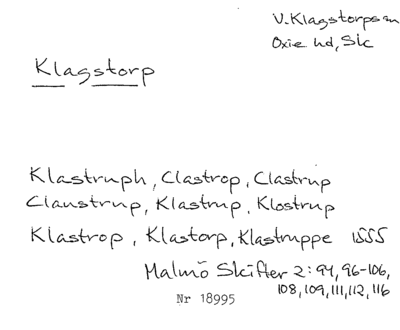 V. Klagstorps sn
Oxie hd, Sk
Klagstorp
Klastruph, Clastrop, Clastrup
Claustrup, Klastrup, Klostrup
Klastrop, Klastorp, Klastruppe 1555
Malmö Skifter 2:94, 96-106,
108, 109, 111, 112, 116
Nr 18995